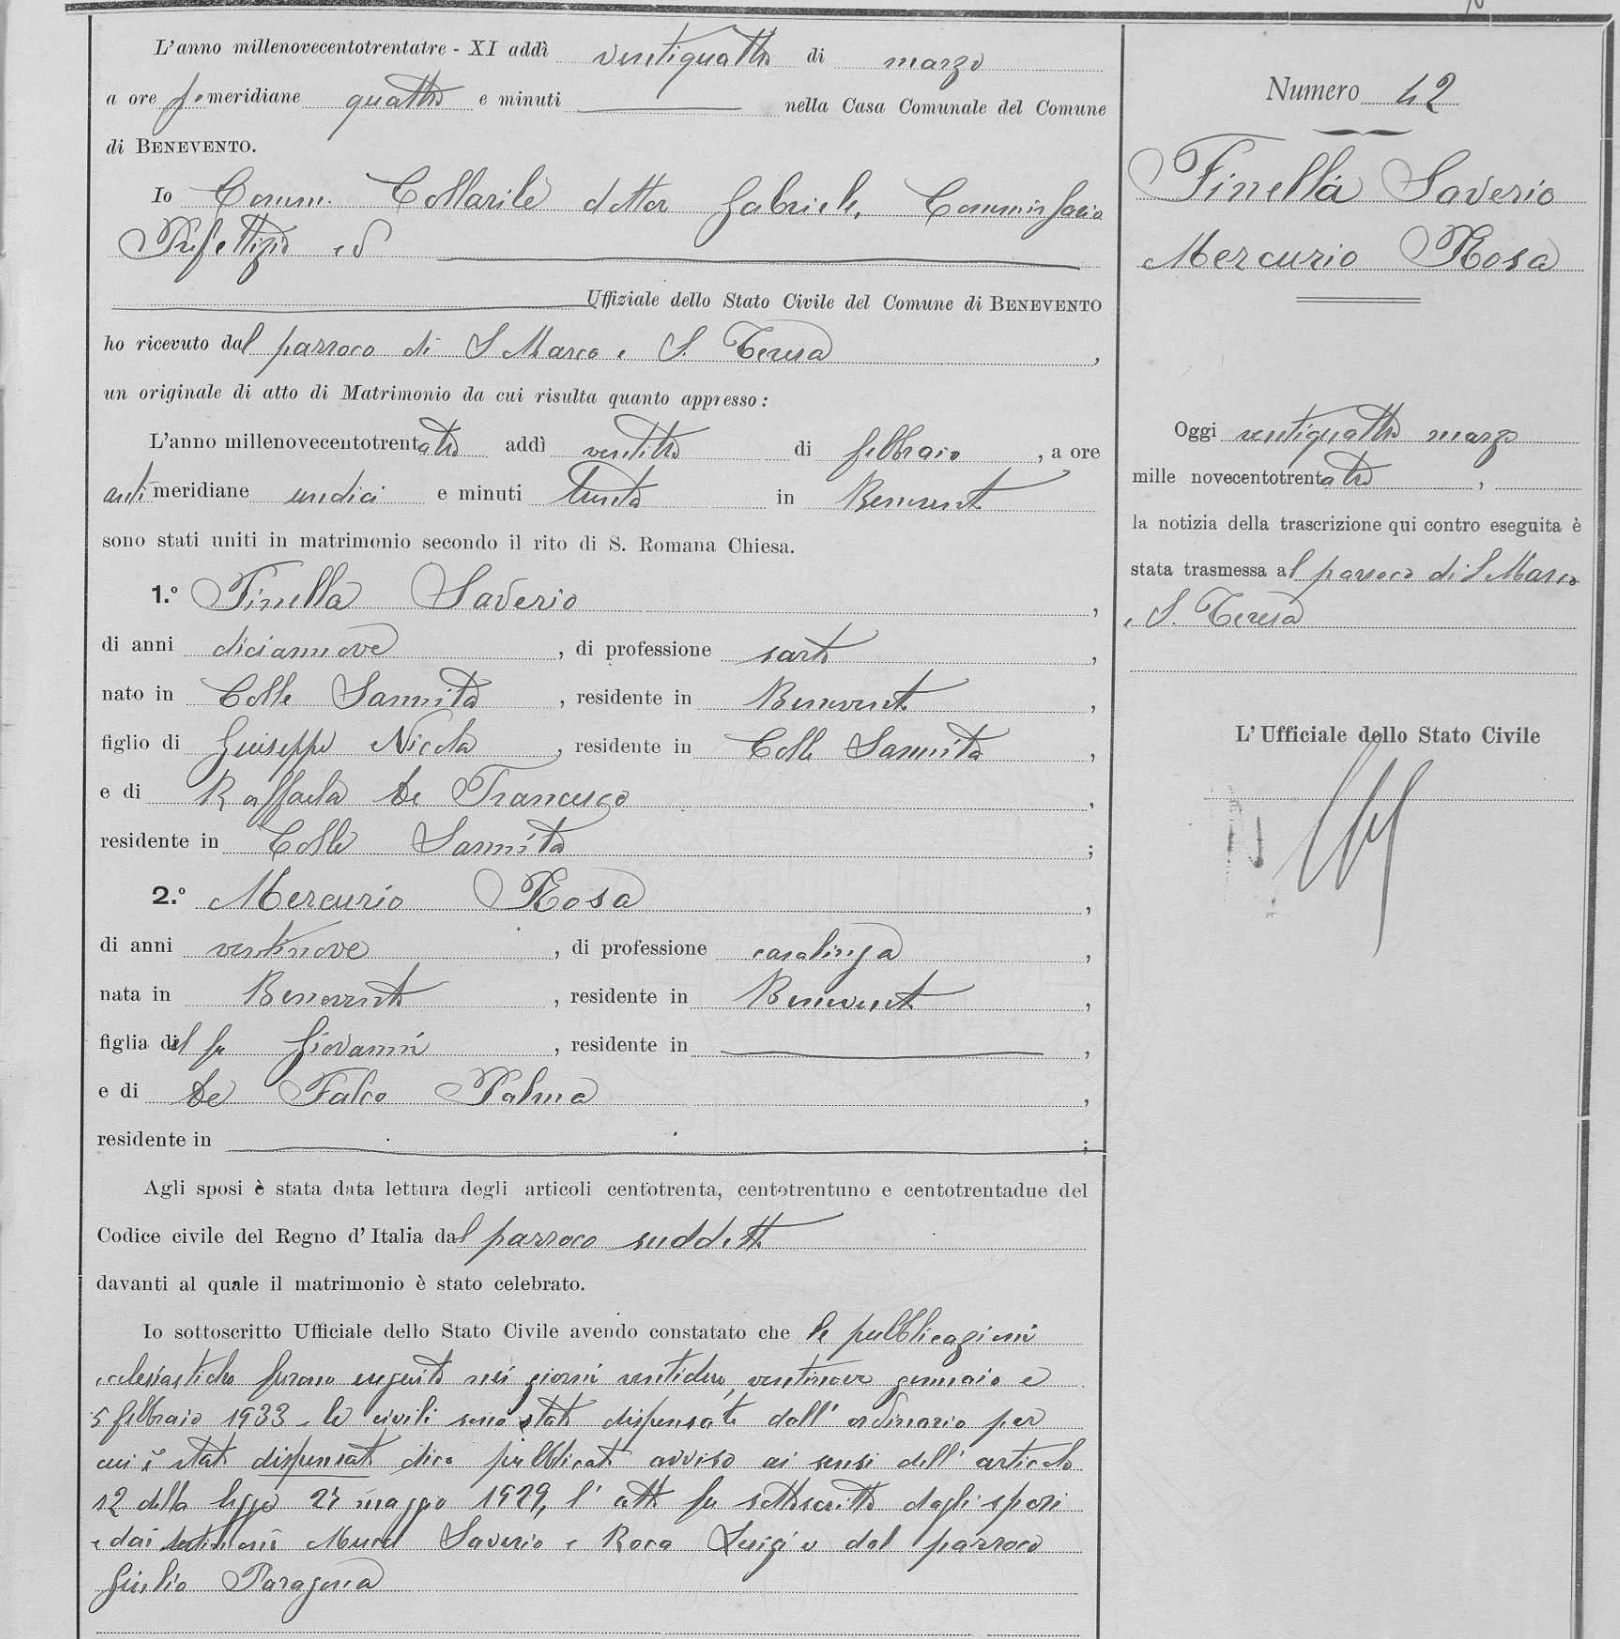 L'anno millenovecentotrentatre - XI addì ventiquattro di marzo
a ore pomeridiane quattro e minuti nella Casa Comunale del Comune
di BENEVENTO.
Io Comm. Collarile dottor Gabriele, Commissario
Prefettizio ed
Uffiziale dello Stato Civile del Comune di BENEVENTO
ho ricevuto dal parroco di S Marco e S. Teresa,
un originale di atto di Matrimonio da cui risulta quanto appresso:
L'anno millenovecentotrentatre addì ventitre di febbraio, a ore
antimeridiane undici e minuti trenta in Benevento
sono stati uniti in matrimonio secondo il rito di S. Romana Chiesa.
1.° Finella Saverio,
di anni diciannove, di professione sarto,
nato in Colle Sannita, residente in Benevento,
figlio di Giuseppe Nicola, residente in Colle Sannita,
e di Raffaela De Francesco,
residente in Colle Sannita;
2.° Mercurio Rosa,
di anni ventinove, di professione casalinga,
nata in Benevento, residente in Benevento,
figlia del fu Giovanni, residente in,
e di De Falco Palma,
residente in;
Agli sposi è stata data lettura degli articoli centotrenta, centotrentuno e centotrentadue del
Codice civile del Regno d'Italia dal parroco suddetto
davanti al quale il matrimonio è stato celebrato.
Io sottoscritto Ufficiale dello Stato Civile avendo constatato che le pubblicazioni
ecclesiastiche furono eseguite nei giorni ventidue, ventinove gennaio e
5 febbraio 1933 - le civili sono state dispensate dall'ordinario per
cui è stato dispensato dico pubblicato avviso ai sensi dell'articolo
12 della legge 27 maggio 1929, l'atto fu sottoscritto dagli sposi
e dai testimoni Saverio e Luigi e dal parroco
Giulio Paragona
Numero 42
Finella Saverio
Mercurio Rosa
Oggi ventiquattro marzo
mille novecentotrentatre,
la notizia della trascrizione qui contro eseguita è
stata trasmessa al parroco di S Marco
e S. Teresa
L'Ufficiale dello Stato Civile